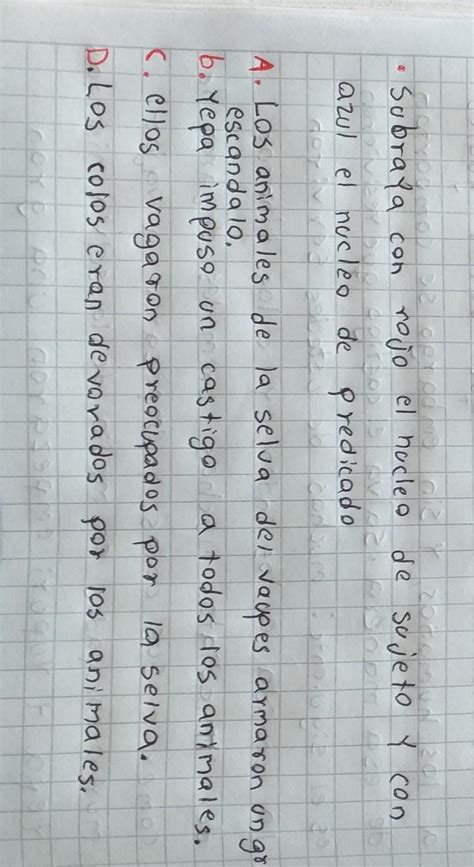 • Subraya con rojo el nucleo de sujeto y con
azul el nucleo de predicado
A. Los animales de la selva del vaupes armaron un gr
escandalo.
b. Yepa impuso un castigo a todos los animales.
C. ellos vagaron preocupados por la selva.
D. Los colos eran devorados por los animales.